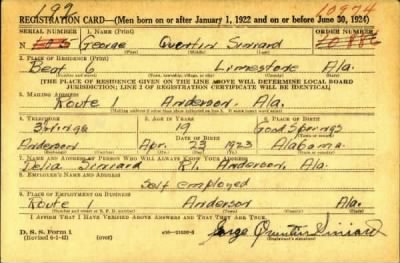 192
10974
REGISTRATION CARD—(Men born on or after January 1, 1922 and on or before June 30, 1924)
SERIAL NUMBER 1. NAME (Print) ORDER NUMBER
N George Quentin Siniard
2. PLACE OF RESIDENCE (Print)
Beat 6 Limestone Ala.
(Number and street) (Town, township, village, or city) (County) (State)
[THE PLACE OF RESIDENCE GIVEN ON THE LINE ABOVE WILL DETERMINE LOCAL BOARD
JURISDICTION; LINE 2 OF REGISTRATION CERTIFICATE WILL BE IDENTICAL]
3. MAILING ADDRESS
Route 1 Anderson, Ala.
4. TELEPHONE 5. AGE IN YEARS 6. PLACE OF BIRTH
3 rings 19 Good Springs
DATE OF BIRTH
Anderson Apr. 23 1923 Alabama
7. NAME AND ADDRESS OF PERSON WHO WILL ALWAYS KNOW YOUR ADDRESS
Delia Siniard Rt. 1 Anderson, Ala.
8. EMPLOYER'S NAME AND ADDRESS
Self employed
9. PLACE OF EMPLOYMENT OR BUSINESS
Route 1 Anderson Ala.
(Number and street or R. F. D. number) (Town) (County) (State)
I AFFIRM THAT I HAVE VERIFIED ABOVE ANSWERS AND THAT THEY ARE TRUE.
D. S. S. Form 1
(Revised 6-9-42) (over)
George Quentin Siniard
(Registrant's signature)